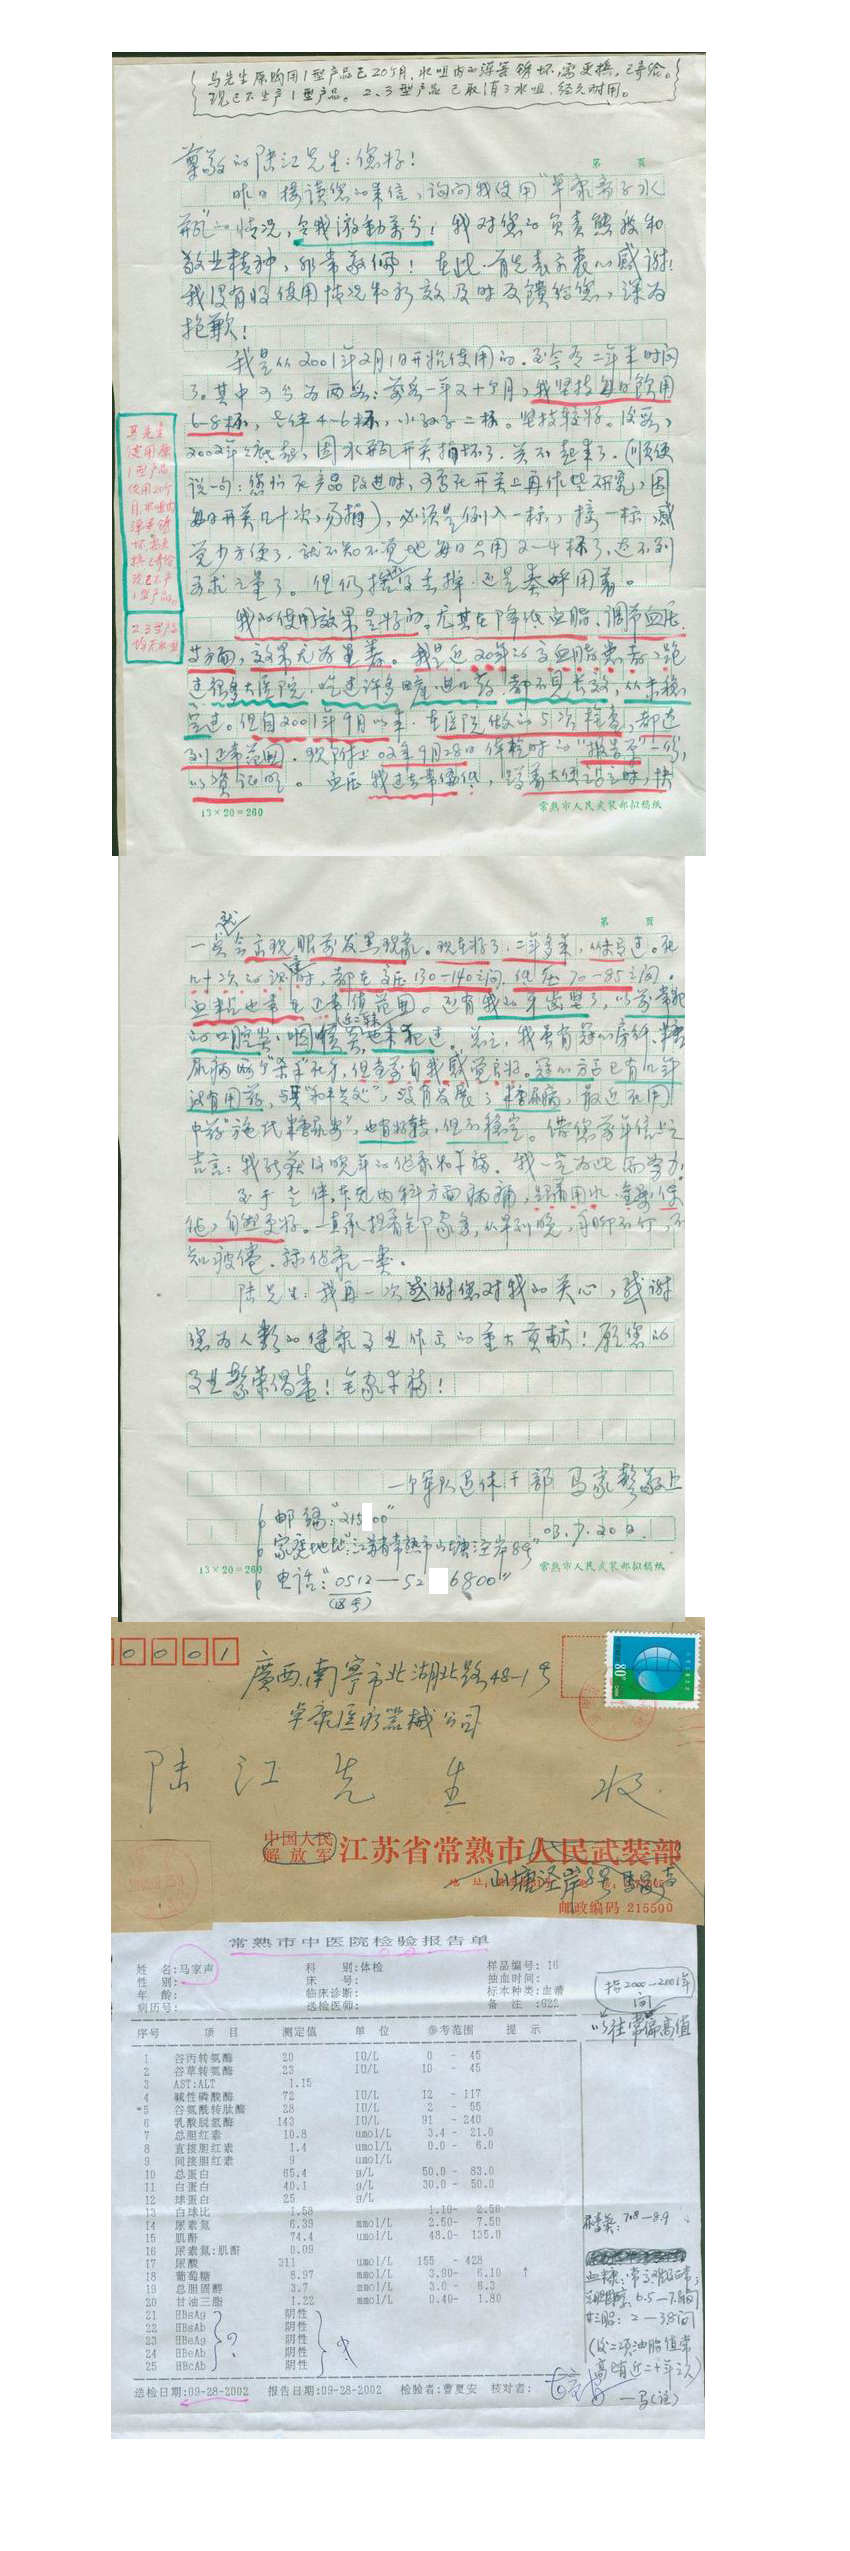 马先生原购用1型产品已20个月，水咀内的弹簧锈坏，需更换，已寄给。
现已不生产1型产品。2、3型产品已取消了水咀，经久耐用。
第 页
尊敬的陆江先生：您好！
昨日接读您的来信，询问我使用“卓康离子水
瓶”的情况，令我激动万分！我对您的负责态度和
敬业精神，非常敬佩！在此，首先表示衷心感谢！
我没有将使用情况和疗效及时反馈给您，深为
抱歉！
我是从2001年2月1日开始使用的，至今有二年来时间
了。其中可分为两段：前段一年又十个月，我坚持每日饮用
6-8杯，老伴4-6杯，小孙子二杯。坚持较好。后段，
2002年底起，因水瓶开关损坏了，关不起来了，（顺便
说一句：您们在产品改进时，可否在开关上再作些研究，因
每日开关几十次，易损），必须是倒入一杯，接一杯，感
觉少方便了，就不知不觉地每日只用2-4杯了，达不到
要求之量了。但仍舍不得丢掉，还是奉呼用着。
我的使用效果是好的，尤其在降低血脂、调节血压
等方面，效果尤为显著。我是近20年的高血脂患者，跑
过很多大医院，吃过许多降血脂药，都不见长效，从未稳
定过。但自2001年9月以来，在医院做的5次检查，都达
到正常范围，现附上02年9月28日体检时的“报告单”一份，
以资证明。血压我过去常偏低，蹲着大便站立时，快
13×20=260
常熟市人民武装部拟稿纸
马先生
使用原
1型产品
使用20个
月，水咀内
弹簧锈
坏，需更
换，已寄给
现已不产
1型产品。
2.3型产品
均无水咀
第 页
就
一点会出现眼前发黑现象。现在好了，二年多来，从未有过。在
几十次的测量时，都在高压130-140之间，低压70-85之间。
血粘度也常在正常值范围。还有我的牙齿坚了，以前常犯
的口腔炎、咽喉炎，近二年来也未犯过。总之，我虽有冠心房纤、糖
尿病两个“杀手”在身，但当前自我感觉良好。冠心方面已有几年
没有用药，与其“和平共处”，没有发展；糖尿病，最近在用
中药“施氏糖尿安”，也有好转，但不稳定。借您前年信上之
吉言：我能获得晚年的健康和幸福。我一定为此而努力！
至于老伴，在无内科方面病痛，经常用水，身影保
健，自然更好。一直承担着全部家务，从早到晚，手脚不停，不
知疲倦，一类。
陆先生：我再一次感谢您对我的关心，感谢
您为人类的健康事业作出的重大贡献！愿您的
事业繁荣昌盛！全家幸福！
一个军队退休干部 马家声敬上
03.7.20日
邮编：“215 00”
家庭地址：“江苏省常熟市山塘泾岸8号”
电话：“0512-52 6800”
（区号）
13×20=260
常熟市人民武装部拟稿纸
0 0 0 1
80分
廣西南宁市北湖北路48-1号
卓康医疗器械公司
陆江先生 收
中国人民
解放军 江苏省常熟市人民武装部
山塘泾岸8号 马家声
邮政编码 215500
常熟市中医院检验报告单
姓 名：马家声 科 别：体检 样品编号：16
性 别： 床 号： 抽血时间：
年 龄： 临床诊断： 标本种类：血清
病历号： 送检医师： 备 注：G22
序号 项 目 测定值 单 位 参考范围 提 示
1 谷丙转氨酶 20 IU/L 0 - 45
2 谷草转氨酶 23 IU/L 10 - 45
3 AST:ALT 1.15
4 碱性磷酸酶 72 IU/L 12 - 117
*5 谷氨酰转肽酶 28 IU/L 2 - 55
6 乳酸脱氢酶 143 IU/L 91 - 240
7 总胆红素 10.8 umol/L 3.4 - 21.0
8 直接胆红素 1.4 umol/L 0.0 - 6.0
9 间接胆红素 9 umol/L
10 总蛋白 65.4 g/L 50.0 - 83.0
11 白蛋白 40.1 g/L 30.0 - 50.0
12 球蛋白 25 g/L
13 白球比 1.58 1.10- 2.50
14 尿素氮 6.39 mmol/L 2.50- 7.50
15 肌酐 74.4 umol/L 48.0- 135.0
16 尿素氮:肌酐 0.09
17 尿酸 311 umol/L 155 - 428
18 葡萄糖 8.97 mmol/L 3.90- 6.10 ↑
19 总胆固醇 3.7 mmol/L 3.0 - 6.3
20 甘油三脂 1.22 mmol/L 0.40- 1.80
21 HBsAg 阴性
22 HBsAb 阴性
23 HBeAg 阴性
24 HBeAb 阴性
25 HBcAb 阴性
送检日期:09-28-2002 报告日期:09-28-2002 检验者:曹夏安 核对者:
指2000-2001年
间
以往常偏高值
尿素氮：7.8-8.9
血糖：
总胆固醇：6.5-7.8间
甘三脂：2-3.8间
（后二项油脂值常
高已有近二十年之久）
—马（注）